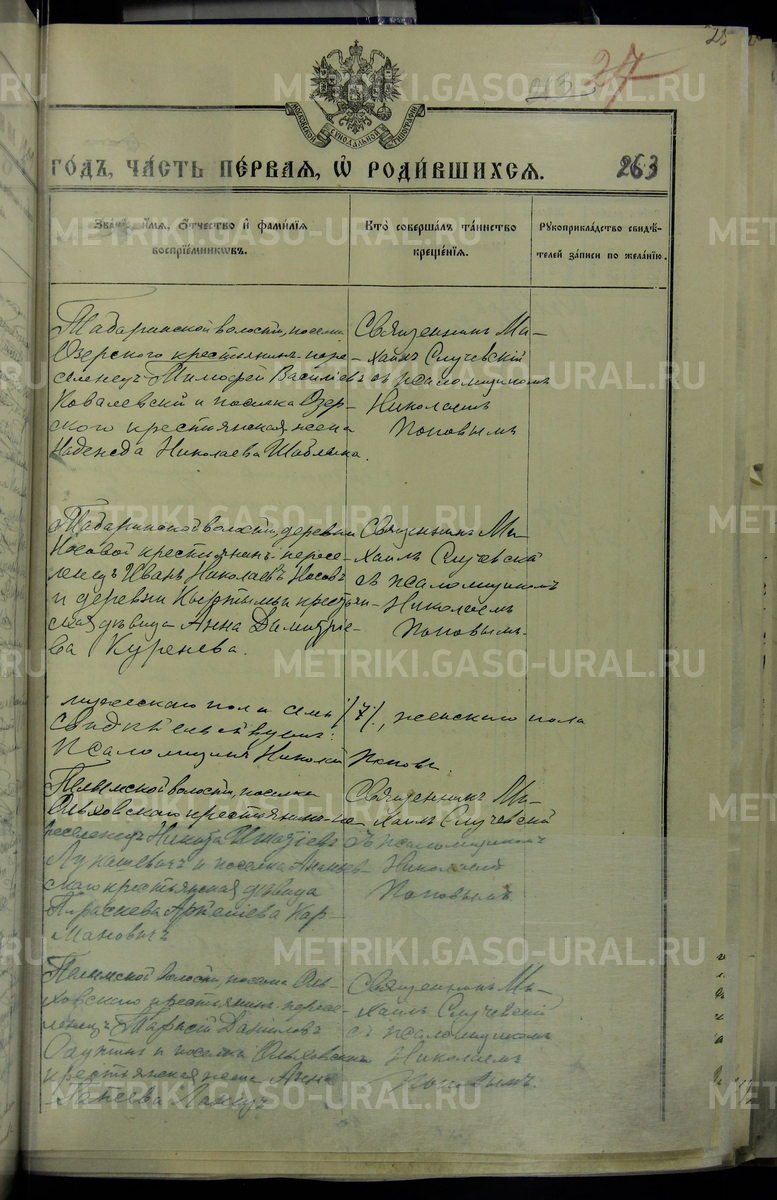 25
213
27
МОСКОВСКОЙ СѴНОДАЛЬНОЙ ТИПОГРАФІИ
ГОДЪ, ЧАСТЬ ПЕРВАЯ, Ѡ РОДИВШИХСЯ.
263
Званіе, имя, отчество и фамилія воспріемниковъ.
Кто совершалъ таинство крещенія.
Рукоприкладство свидѣтелей записи по желанію.
Табаринской волости, поселка
Озерского крестьянинъ пере-
селенецъ Тимофей Васильевъ
Ковалевскій и поселка Озер-
ского крестьянская жена
Надежда Николаева Шаблыка.
Священникъ Ми-
хаилъ Случевскій
съ псаломщикомъ
Николаемъ
Поповымъ
Табаринской волости, деревни
Носовой крестьянинъ пересе-
ленецъ Иванъ Николаевъ Носовъ
и деревни Кыртымьи крестьян-
ская дѣвица Анна Димитріе-
ва Куренева.
Священникъ Ми-
хаилъ Случевскій
съ псаломщикомъ
Николаемъ
Поповымъ.
мужескаго пола семь /7/, женскаго пола
свидѣтельствуютъ:
Псаломщикъ Николай Поповъ.
Пелымской волости, поселка
Ольховскаго крестьянинъ пе-
реселенецъ Никита Игнатіевъ
Лукашевичъ и поселка
скаго крестьянская дѣвица
Параскева Кар-
мановичъ
Священникъ Ми-
хаилъ Случевскій
съ псаломщикомъ
Николаемъ
Поповымъ
Пелымской волости, поселка Оль-
ховскаго крестьянинъ пересе-
ленецъ Тарасій Даниловъ
и поселка Ольховскаго
крестьянская жена Анна
Священникъ Ми-
хаилъ Случевскій
съ псаломщикомъ
Николаемъ
Поповымъ.
METRIKI.GASO-URAL.RU